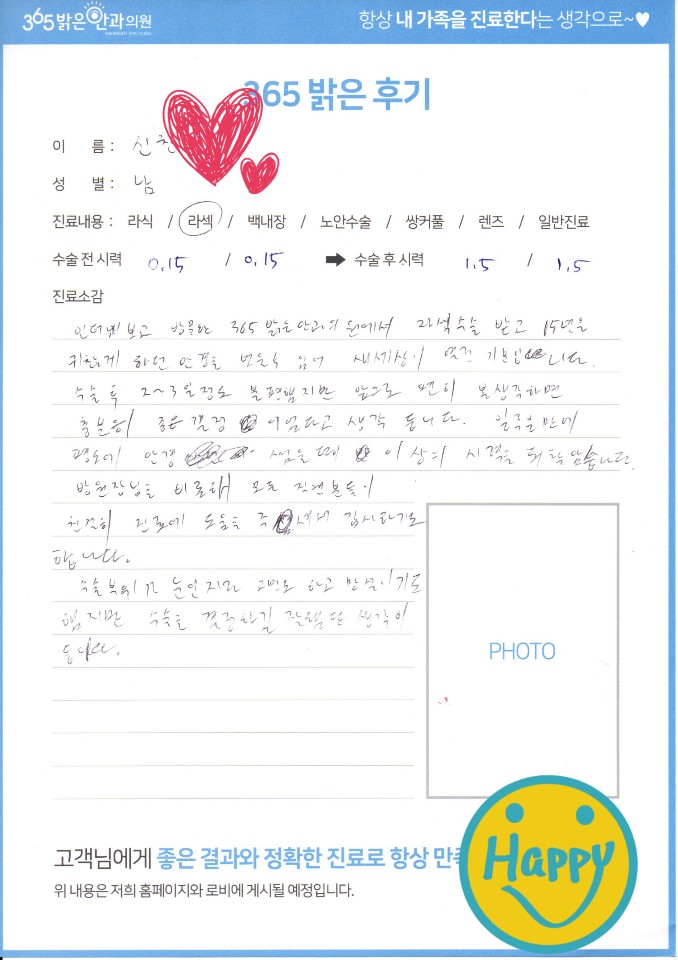 365 밝은안과의원
항상 내 가족을 진료한다는 생각으로~♥
365 밝은 후기
이 름 : 신
성 별 : 남
진료내용 : 라식 / 라섹 / 백내장 / 노안수술 / 쌍커풀 / 렌즈 / 일반진료
수술 전 시력 0.15 / 0.15 ➡ 수술 후 시력 1.5 / 1.5
진료소감
인터넷보고 방문한 365 밝은안과의원에서 라섹수술 받고 15년을
귀찮게 하던 안경을 벗을수 있어 새세상이 열린 기분입니다.
수술 후 2~3일정도 불편했지만 앞으로 편히 볼생각하면
충분히 좋은 결정 이었다고 생각 듭니다. 일주일만에
평소에 안경 썼을때 이상의 시력을 되찾았습니다.
방원장님을 비롯해 모든 직원분들이
친절히 진료에 도움을 주셔서 감사하기도
합니다.
수술부위가 눈인지라 고민도 하고 망설이기도
했지만 수술을 결정하길 잘했단 생각이
듭니다.
PHOTO
고객님에게 좋은 결과와 정확한 진료로 항상
위 내용은 저희 홈페이지와 로비에 게시될 예정입니다.
Happy